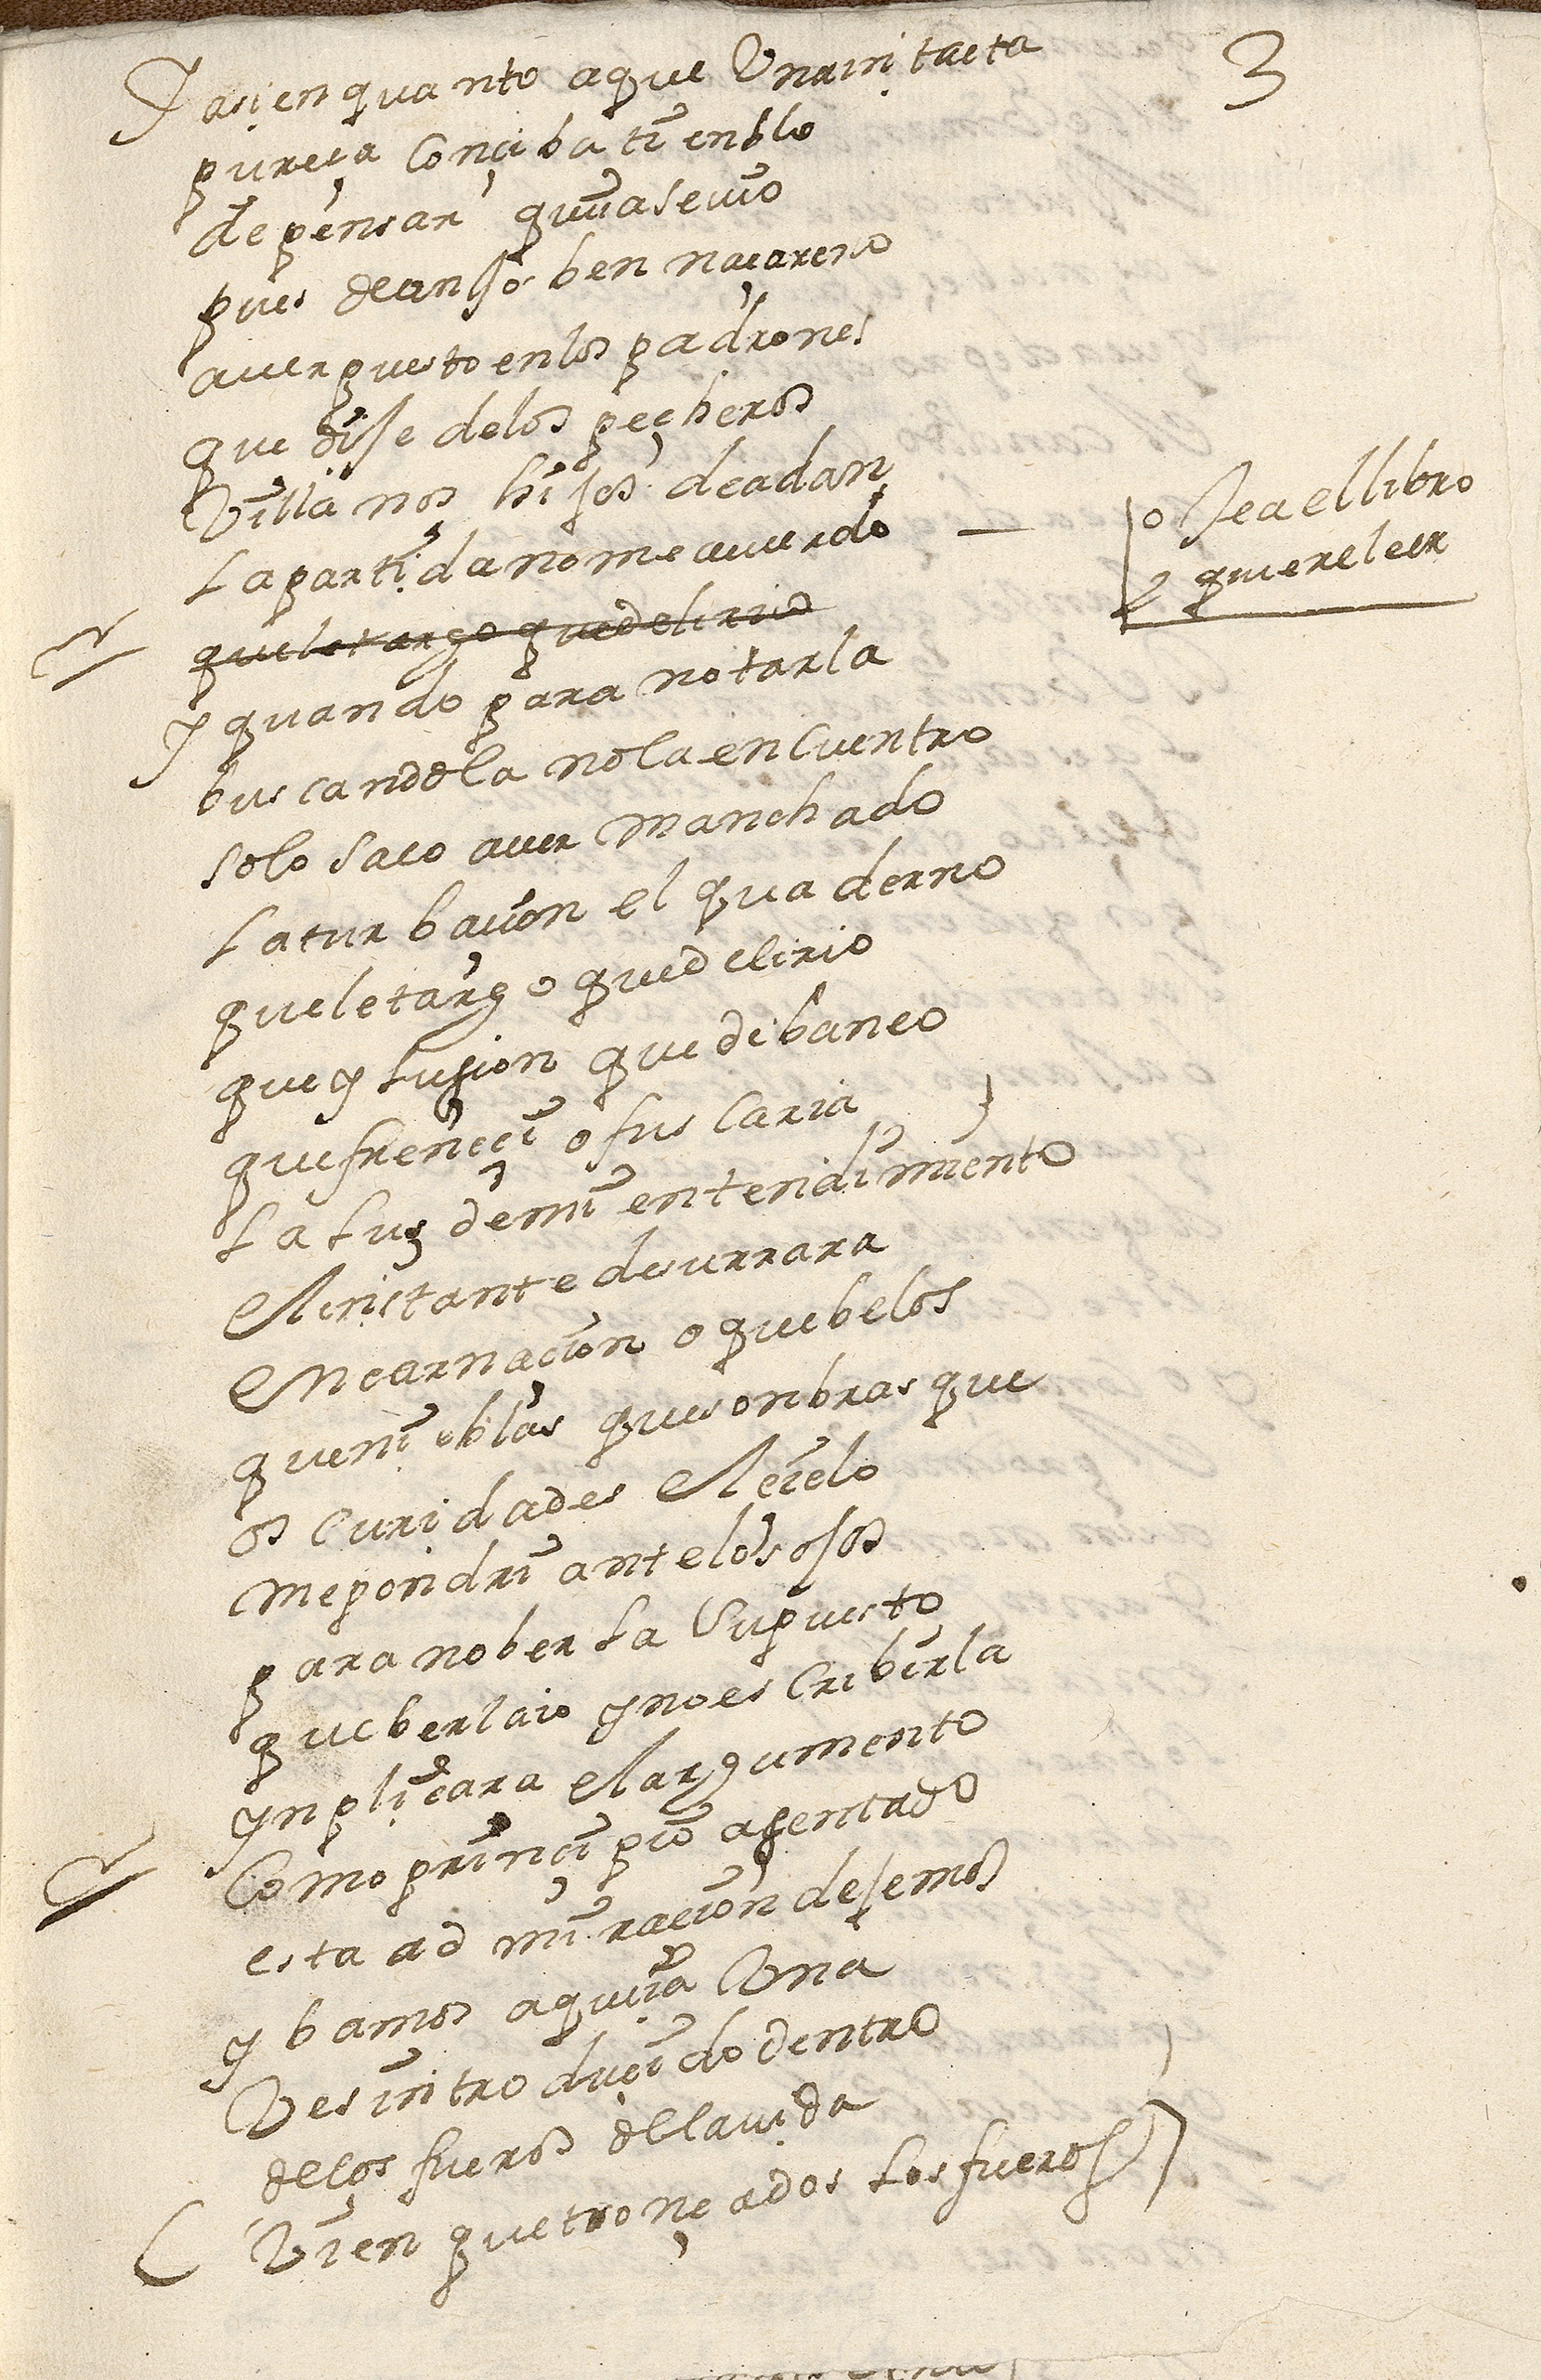 3
Y asi en quanto a que Una in tacta
pureça Conçiba tienblo
de pensar quua se uio
pues de anso ben naçareno
auer puesto en los padrones
que dise de los peçheros
Villa nos hijos de adan
La partida no me acuerdo —
sea el libro
quiere leer
que letargo que delirio
y quando para notarla
buscandola no la encuentro
solo saco auer manchado
La turbaçion el quaderno
que letargo que delirio
que ylusion que debaneo
que freneçi ofuscaria
La Luz de mi entendimiento
el instante de su rrara
encarnaçion o que belos
que nieblas que sonbras que
oscuridades el çielo
me pondri ante los ojos
para no berla supuesto
que berla io y no escribirla
ynplicara el argumento
Como prinçipio asentado
esta admiraçion dejemos
y bamos a quia Una
Ves introduçido dentro
de los fueros de la uida
Vien que tronçados Los fueros